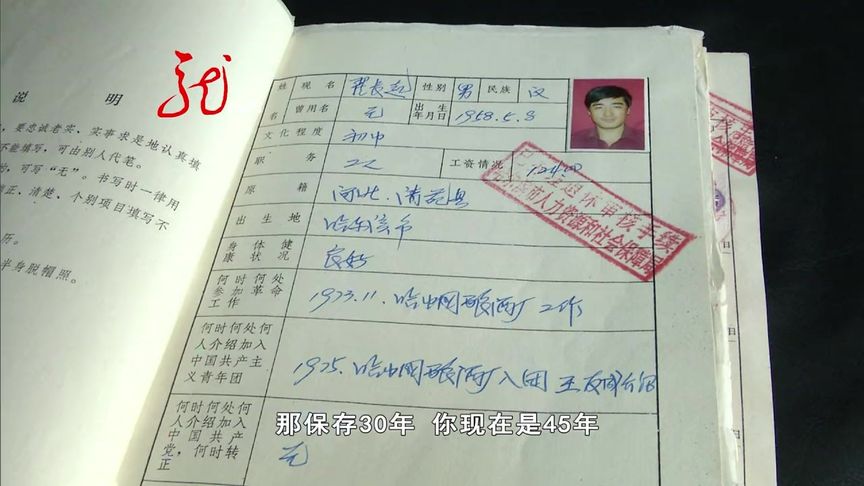 说 明
，要忠诚老实、实事求是地认真填
不能填写，可由别人代笔。
的，可写“无”。书写时一律用
正、清楚、个别项目填写不
历。
半身脱帽照。
龙
姓 名 现 名 性别 男 民族 汉
曾用名 无 出生年月日 1958.5.3
文化程度 初中
职 务 工人 工资情况
原 籍 河北.清苑县
出 生 地 哈尔滨市
身体健康状况 良好
何时何处参加革命工作 1973.11. 哈中国酿酒厂工作
何时何处何人介绍加入中国共产主义青年团 1975. 哈中国酿酒厂入团
何时何处何人介绍加入中国共产党，何时转正 无
退休审核手续
市人力资源和社会保障局
那保存30年 你现在是45年